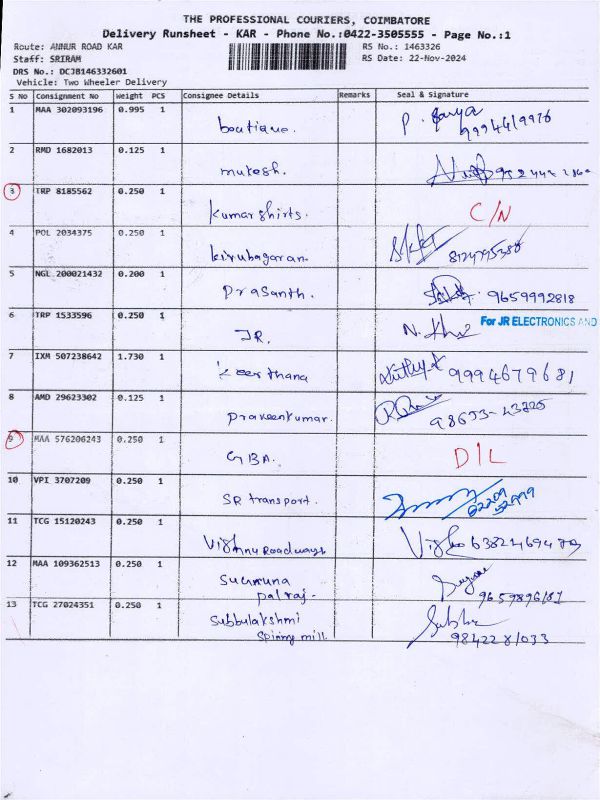 THE PROFESSIONAL COURIERS, COIMBATORE
Delivery Runsheet - KAR - Phone No.:0422-3505555 - Page No.:1
Route: ANNUR ROAD KAR
RS No.: 1463326
Staff: SRIRAM
RS Date: 22-Nov-2024
DRS No.: DCJB146332601
Vehicle: Two Wheeler Delivery
S No Consignment No Weight PCS Consignee Details Remarks Seal & Signature
1 MAA 302093196 0.995 1 boutique. P.
2 RMD 1682013 0.125 1 mukesh.
3 TRP 8185562 0.250 1 Kumar shirts. C/N
4 POL 2034375 0.250 1 kirubagaran.
5 NGL 200021432 0.200 1 Prasanth. 9659992818
6 TRP 1533596 0.250 1 JR. For JR ELECTRONICS AND
7 IXM 507238642 1.730 1 keerthana 9994679681
8 AMD 29623302 0.125 1 Praveenkumar. 98653-43825
9 MAA 576206243 0.250 1 GBA. D/L
10 VPI 3707209 0.250 1 SR transport.
11 TCG 15120243 0.250 1 Vishnu Roadways
12 MAA 109362513 0.250 1 palraj. 9659896181
13 TCG 27024351 0.250 1 Subbulakshmi
Spinning mill 9842281033